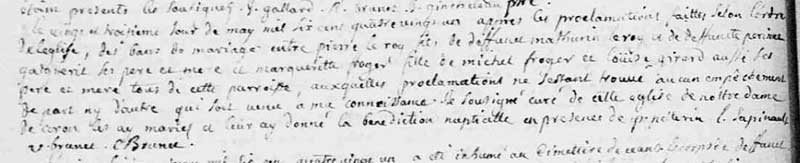 etoint presents les sousignes. J. gallard. R. brunet. J. ginestereau pbre
Le vingt et troisieme jour de may mil six cens quatre vingt un apres les proclamations faittes selon l'ordre
de l'eglise, des bans de mariage entre pierre le roy fils de deffunct mathurin le roy et de deffuncte perinne
ses pere et mere et margueritte froger fille de michel froger et Louise girard aussi ses
pere et mere tous de cette parroisse, auxquelles proclamations ne s'estant trouvé aucun empechement
de part ny d'autre qui soit venu a ma connoissance. Je sousigné curé de cette eglise de nottre dame
de coron les ay mariés et leur ay donné la benediction nuptialle en presence de
R. brunet. C Brunet
mil six cens quatre vingt un a eté inhumé au cimettiere de ceans le corps de deffunct